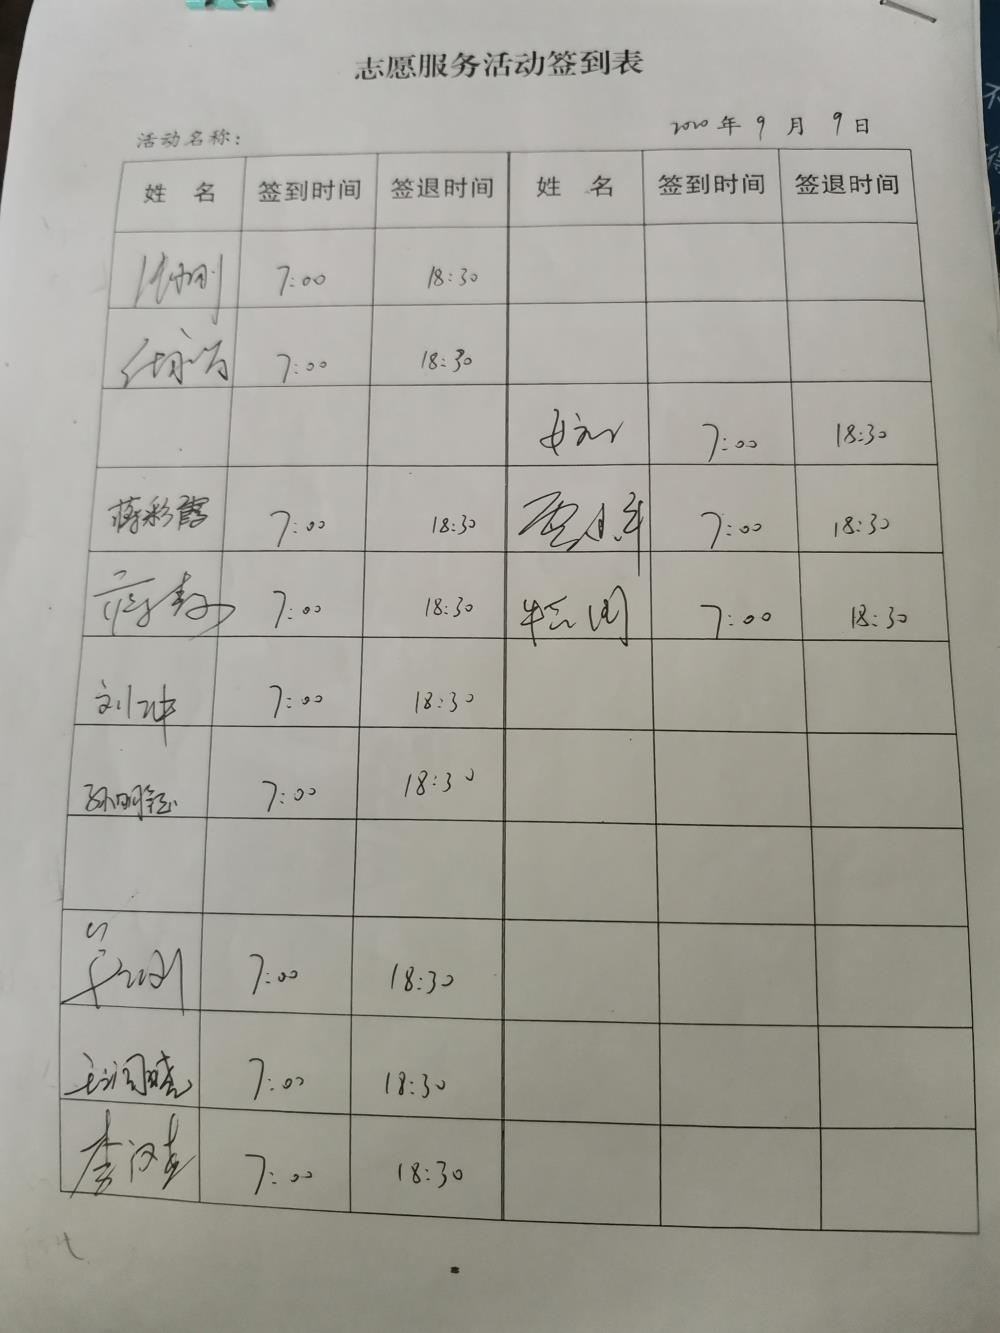 志愿服务活动签到表
活动名称: 2020年9月9日
姓 名 签到时间 签退时间 姓 名 签到时间 签退时间
7:00 18:30
7:00 18:30
7:00 18:30
蒋彩霞 7:00 18:30 7:00 18:30
7:00 18:30 7:00 18:30
刘冲 7:00 18:30
7:00 18:30
7:00 18:30
王润晓 7:00 18:30
李汉春 7:00 18:30